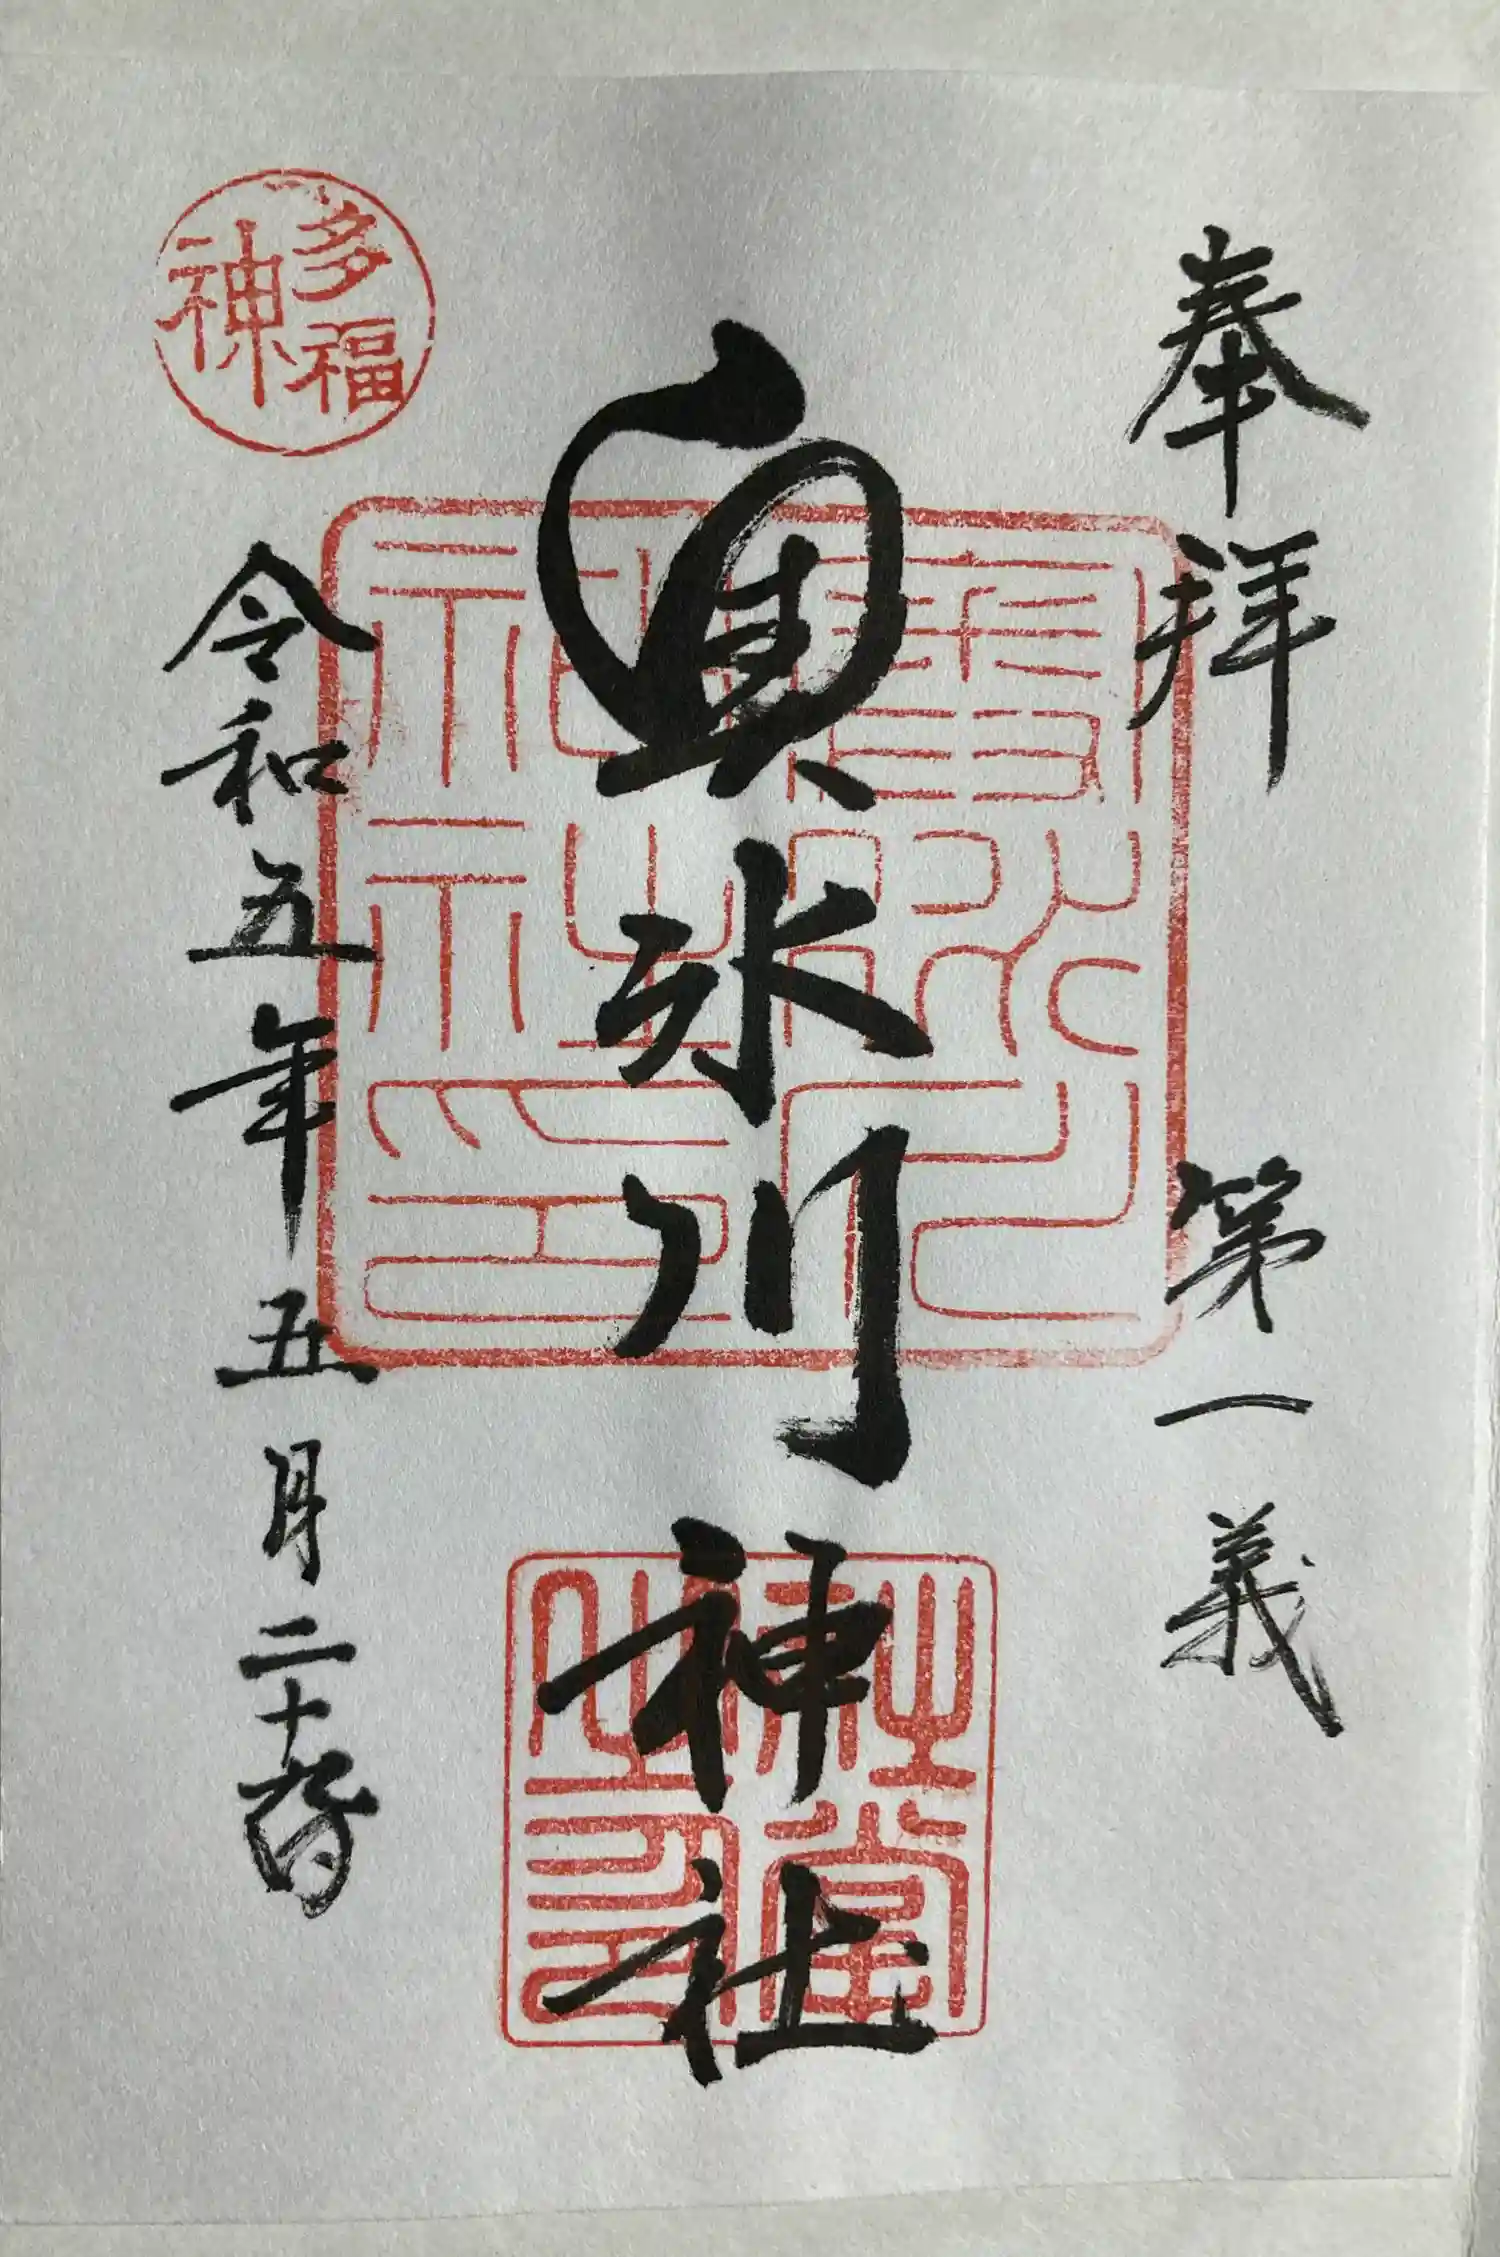 奉拝 第一義
奥氷川神社
令和五年五月二十
多福神
社掌之印